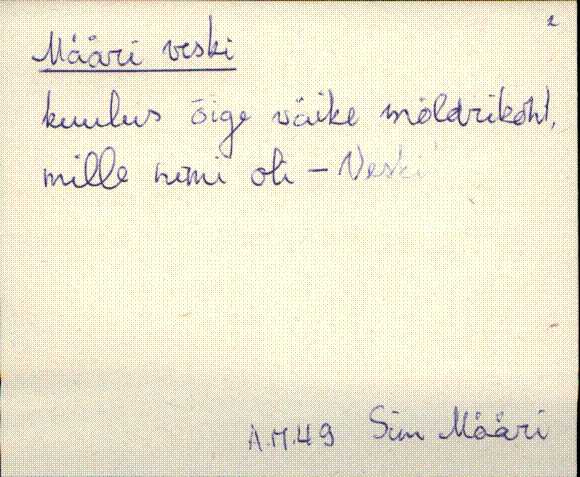 2
Määri veski
kuulus õige väike möldrikoht,
mille nimi oli - Veski
A.M.49 Sim Määri